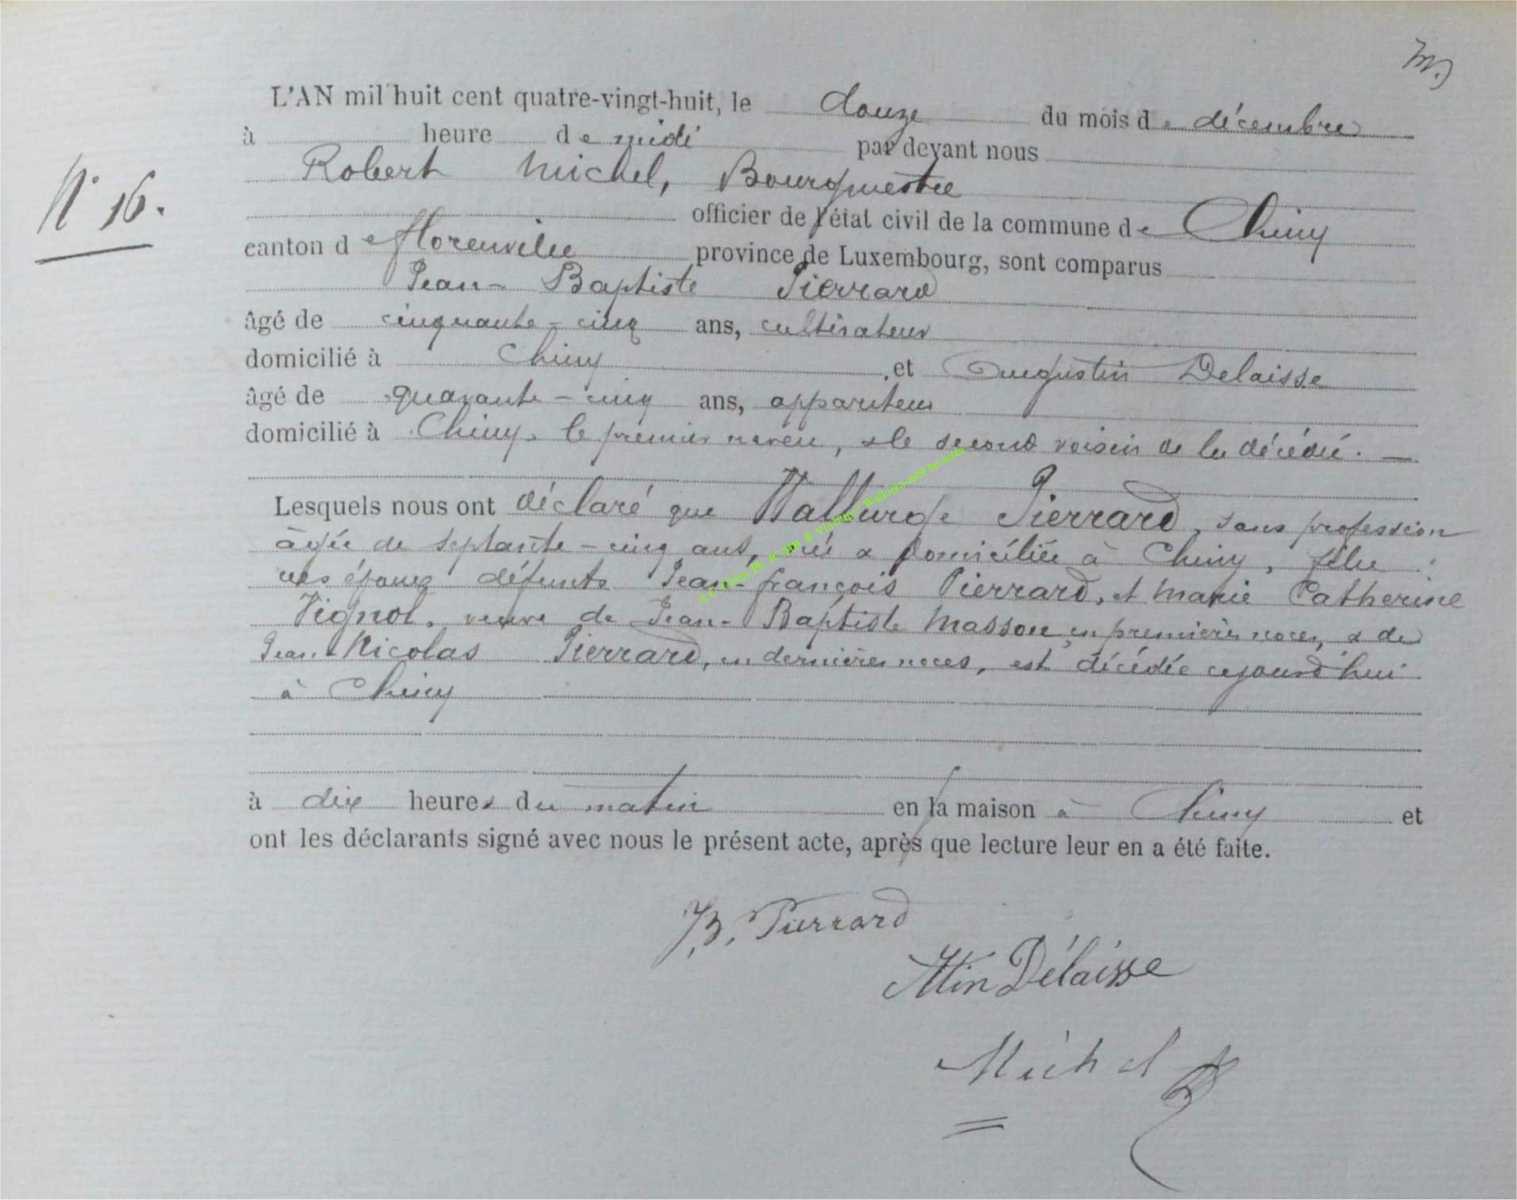 L'AN mil huit cent quatre-vingt-huit, le douze du mois de décembre
à heure de midi par devant nous
Robert Michel, Bourgmestre
N° 16.
officier de l'état civil de la commune de Chiny
canton de Florenville province de Luxembourg, sont comparus
Jean-Baptiste Pierrard
âgé de cinquante-cinq ans, cultivateur
domicilié à Chiny, et Augustin Delaisse
âgé de quarante-cinq ans, appariteur
domicilié à Chiny, le premier neveu, & le second voisin de la décédée. —
Lesquels nous ont déclaré que Walburge Pierrard, sans profession
âgée de septante-cinq ans, née & domiciliée à Chiny, fille
des époux défunts Jean-françois Pierrard, et Marie Catherine
Pignol, veuve de Jean-Baptiste Masson en premières noces, & de
Jean Nicolas Pierrard, en dernières noces, est décédée cejourd'hui
à Chiny
à dix heures du matin en la maison à Chiny et
ont les déclarants signé avec nous le présent acte, après que lecture leur en a été faite.
J.B. Pierrard
Atin Délaisse
Michel R